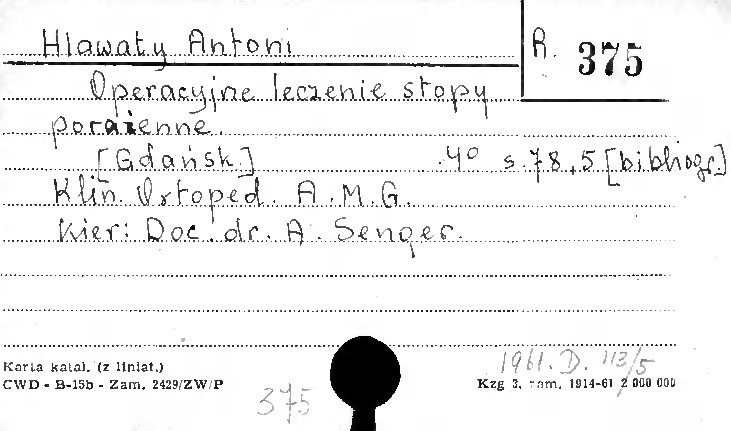 Hlawaty Antoni
R. 375
Operacyjne leczenie stopy
poraźenne.
[Gdańsk] 4° s. 78, 5 [bibliogr.]
Klin. Ortoped. A.M.G.
Kier: Doc. dr. A. Senger.
Karta katal. (z liniat.)
CWD - B-15b - Zam. 2429/ZW/P
375
1961. D. 113/5
Kzg 3, zam. 1914-61 2 000 000